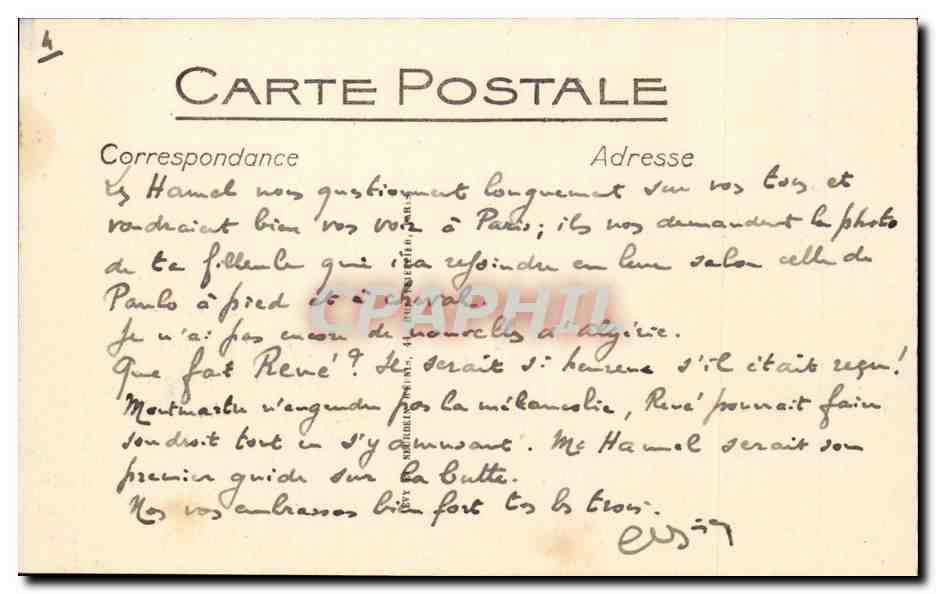 4
CARTE POSTALE
Correspondance Adresse
Les Hamel nous questionnent longuement sur vos tous et
voudraient bien vos voir à Paris; ils nos demandent la photo
de ta filleule qui ira rejoindre en leur salon celle de
Paulo à pied et à cheval.
Je n'ai pas encore de nouvelles d'Algérie.
Que fait René? Il serait si heureux s'il était reçu!
Montmartre n'engendre pas la mélancolie, René pourrait faire
son droit tout en s'y amusant. Me Hamel serait son
premier guide sur la butte.
Nos vos embrassons bien fort tos les trois.
LÉVY NEURDEIN RÉUNIS, 44, PARIS
CPAPHIL